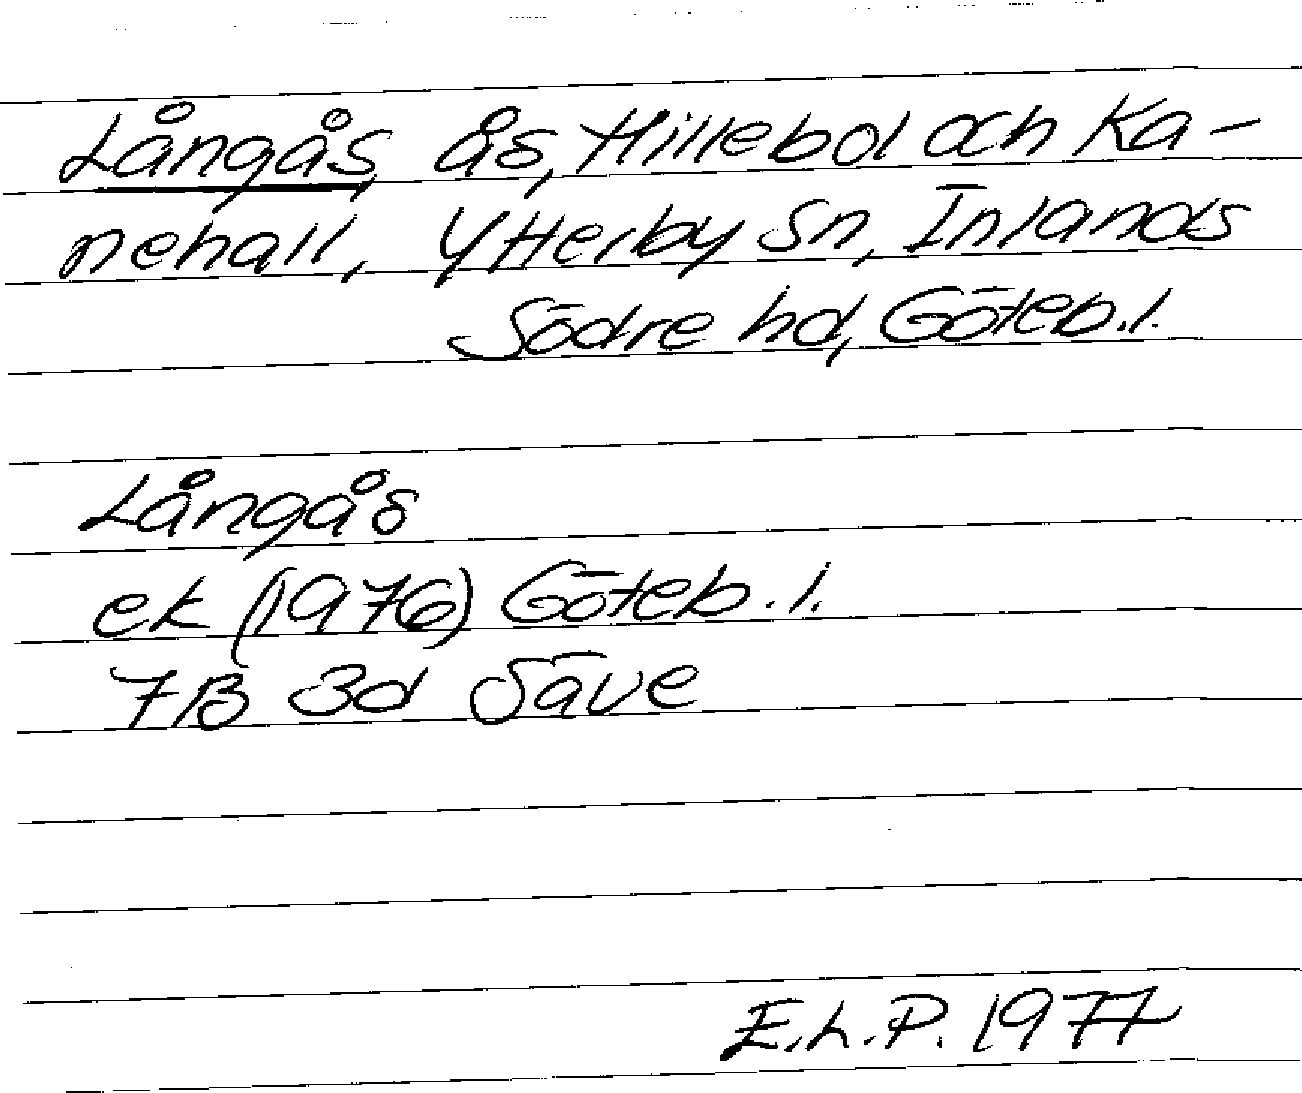 Långås, ås, Hillebol och Ka-
nehall, Ytterby Sn, Inlands
Södre hd, Göteb.l.
Långås
ek (1976) Göteb.l.
7B 3d Säve
E.L.P. 1977